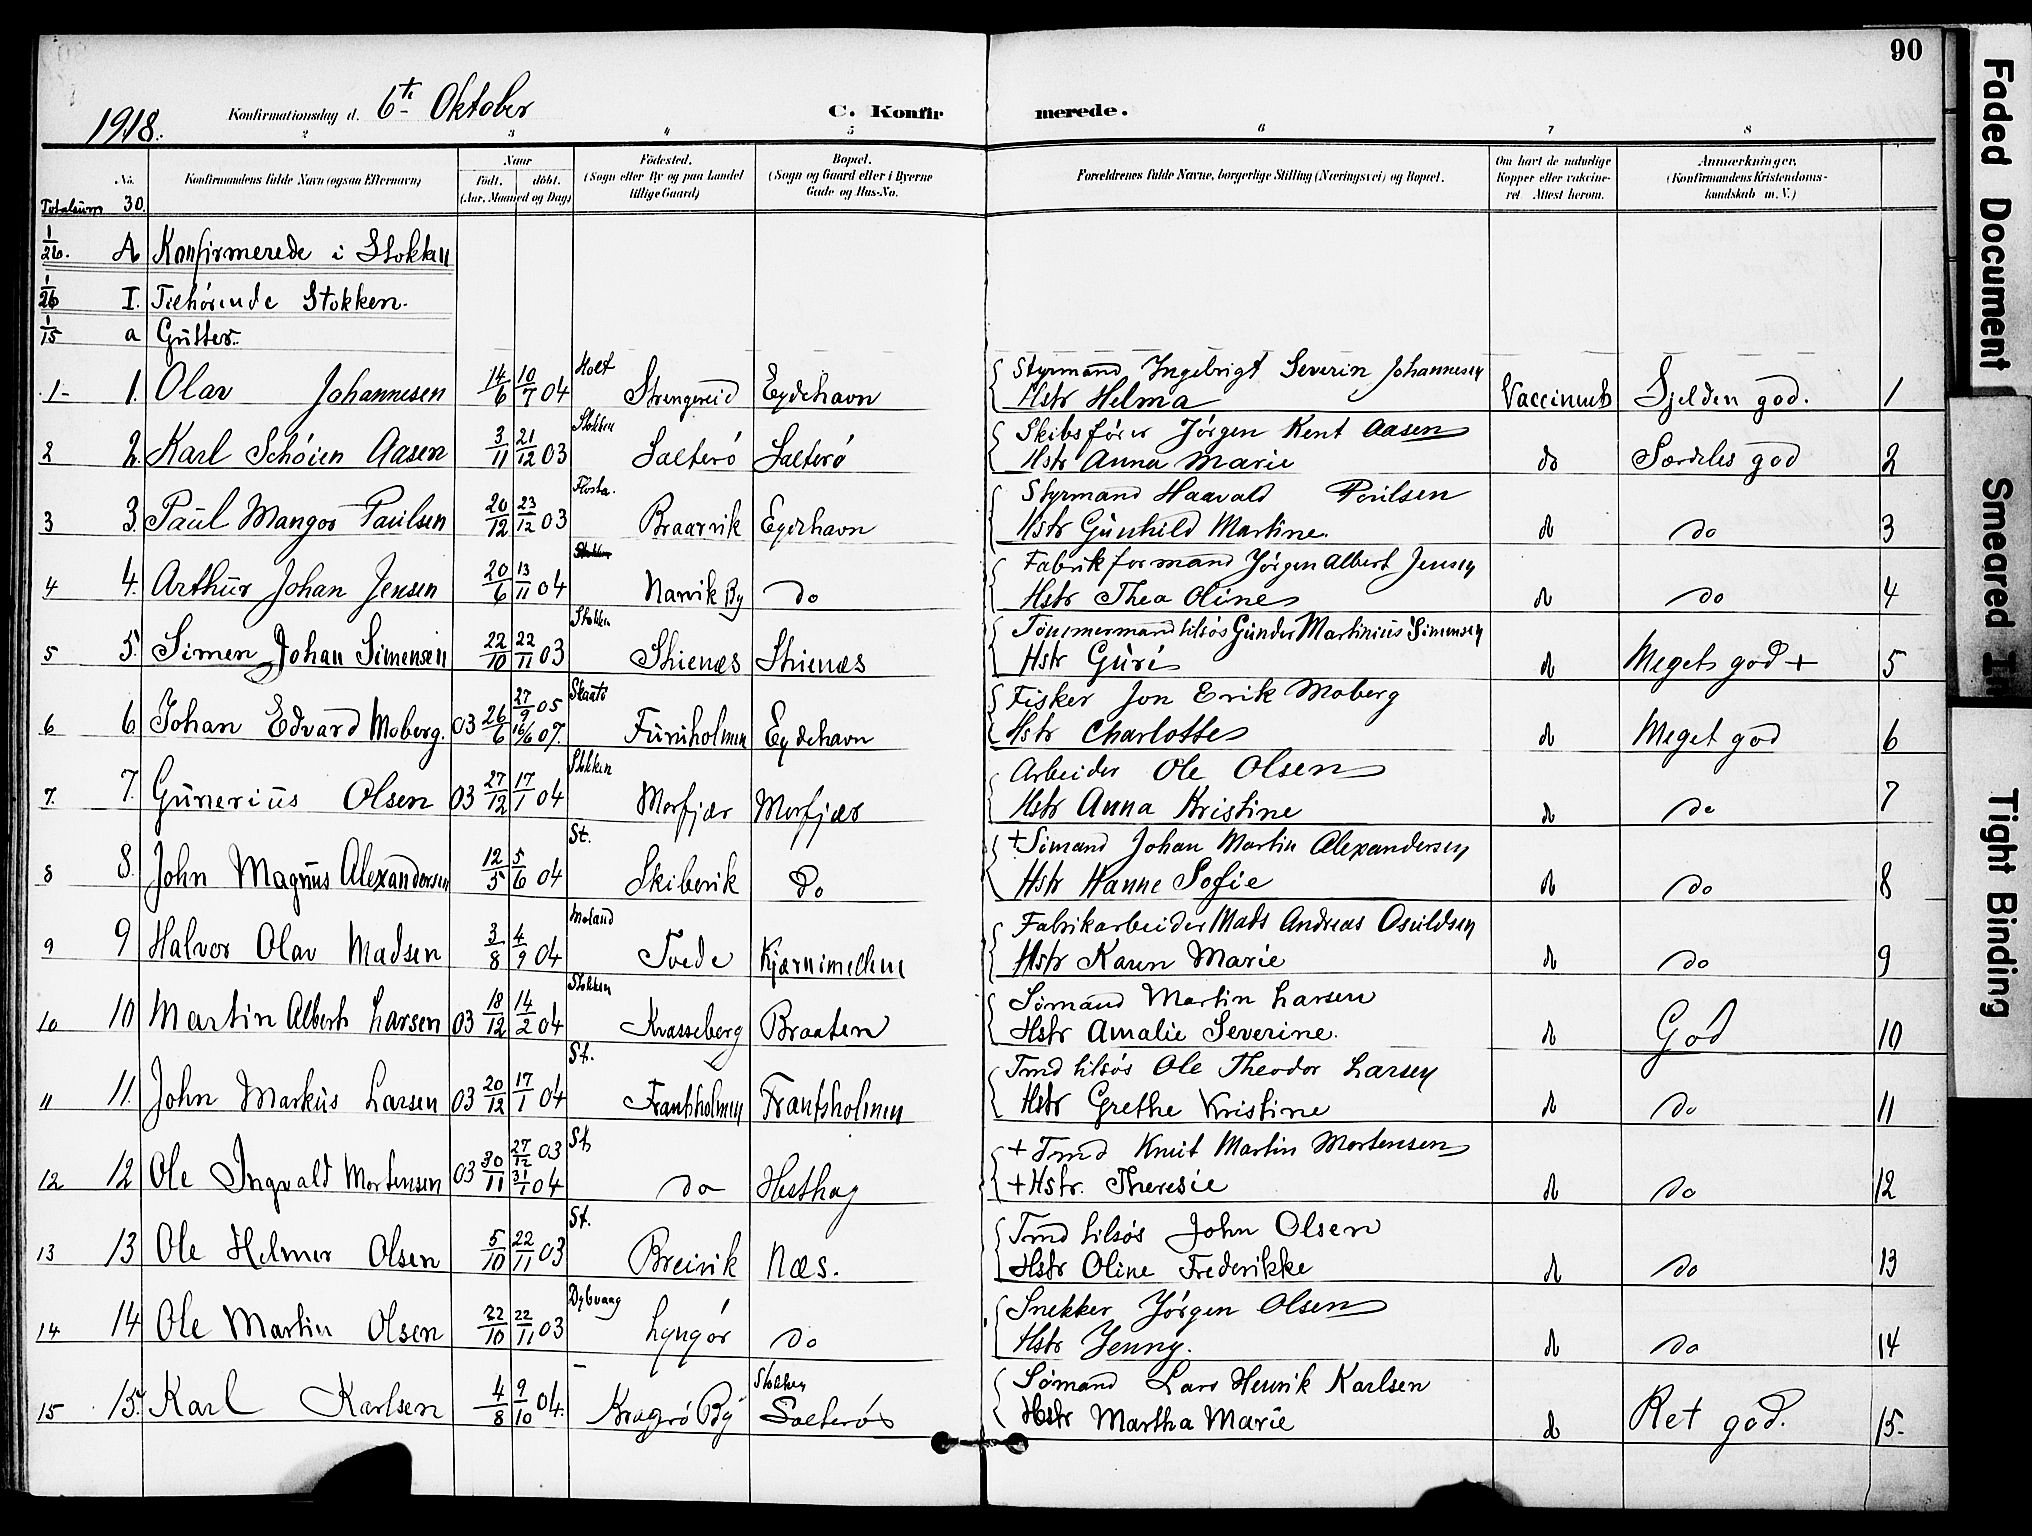 90
1918. Konfirmationsdag d. 6te Oktober C. Konfirmerede.
2 3 4 5 6 7 8
No. Konfirmandens fulde Navn (ogsaa Efternavn) Naar Födt. döbt. (Aar, Maaned og Dag) Födested. (Sogn eller By og paa Landet tillige Gaard) Bopæl. (Sogn og Gaard eller i Byerne Gade og Hus-No. Forældrenes fulde Navne, borgerlige Stilling (Næringsvei) og Bopæl. Om havt de naturlige Kopper eller vakcineret. Attest herom. Anmærkninger. (Konfirmandens Kristendomskundskab m. V.)
Totalsum 30.
1/26. A Konfirmerede i Stokken
1/26 I. Tilhørende Stokken.
1/15 a Gutter.
1 1. Olav Johannesen 14/6 10/7 04 Holt Strengereid Eydehavn Styrmand Ingebrigt Severin Johannesen
Hstr Helma Vaccineret Sjelden god. 1
2 2. Karl Schöien Aasen 3/11 21/12 03 Stokken Salterö Salterö Skibsfører Jørgen Kent Aasen
Hstr Anna Marie do Særdeles god 2
3 3. Paul Mangor Paulsen 20/12 23/12 03 Flosta. Braarvik Eydehavn Styrmand Haavald Paulsen
Hstr Gunhild Martine. d do 3
4 4. Arthur Johan Jensen 20/6 13/11 04 Narvik By do Fabrikformand Jørgen Albert Jensen
Hstr Thea Oline d do 4
5 5. Simen Johan Simensen 22/10 22/11 03 Stokken Skienæs Skienæs Tømmermand tilsøs Gunder Martinius Simensen
Hstr Guri d Meget god + 5
6 6. Johan Edvard Moberg. 03 26/6 27/9 05 16/6 07. Skaatø Furuholmen Eydehavn Fisker Jon Erik Moberg
Hstr Charlotte d Meget god 6
7. 7. Gunerius Olsen 03 27/12 17/1 04 Stokken Morfjær Morfjær Arbeider Ole Olsen
Hstr Anna Kristine d do 7
8 8. John Magnus Alexandersen 12/5 5/6 04 St. Skibervik Do + Sømand Johan Martin Alexandersen
Hstr Hanne Sofie d do 8
9 9 Halvor Olav Madsen 3/8 4/9 04 Moland Tvede Kjærnimellem Fabrikarbeider Mads Andreas Osuldsen
Hstr Karen Marie d do 9
10 10 Martin Albert Larsen 03 18/12 14/2 04 Stokken Krasseberg Braaten Sømand Martin Larsen
Hstr Amalie Severine. d God 10
11 11. John Markus Larsen 03 20/12 17/1 04 St. Frantsholmen Frantsholmen Tmd tilsøs Ole Theodor Larsen
Hstr Grethe Kristine d do 11
12 12 Ole Ingvald Mortensen 03 30/11 27/12 03 31/1 04 St. do Hesthag + Tmd Knut Martin Mortensen
+ Hstr. Theresie d do 12
13 13 Ole Helmer Olsen 5/10 22/11 03 St. Breivik Næs. Tmd tilsøs John Olsen
Hstr Oline Frederikke d do 13
14 14 Ole Martin Olsen 22/10 22/11 03 Dybvaag Lyngør do Snekker Jørgen Olsen
Hstr Jenny. d do 14
15 15. Karl Karlsen 4/8 9/10 04. – Kragerø By Stokken Salterö Sømand Lars Henrik Karlsen
Hstr Martha Marie d Ret god. 15
Faded Document
Smeared In
Tight Binding